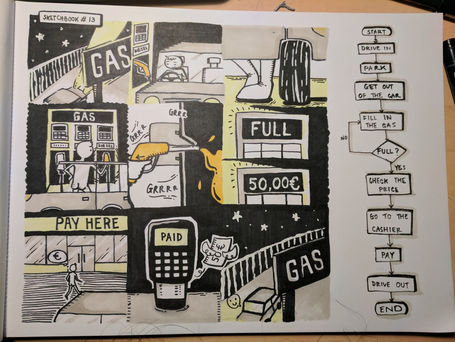 SKETCHBOOK # 13
GAS
GAS
GRRR
GRRR
GRRRR
FULL
50,00€
PAY HERE
€
PAID
GAS
START
DRIVE IN
PARK
GET OUT
OF THE CAR
FILL IN
THE GAS
NO
FULL?
YES
CHECK THE
PRICE
GO TO THE
CASHIER
PAY
DRIVE OUT
END